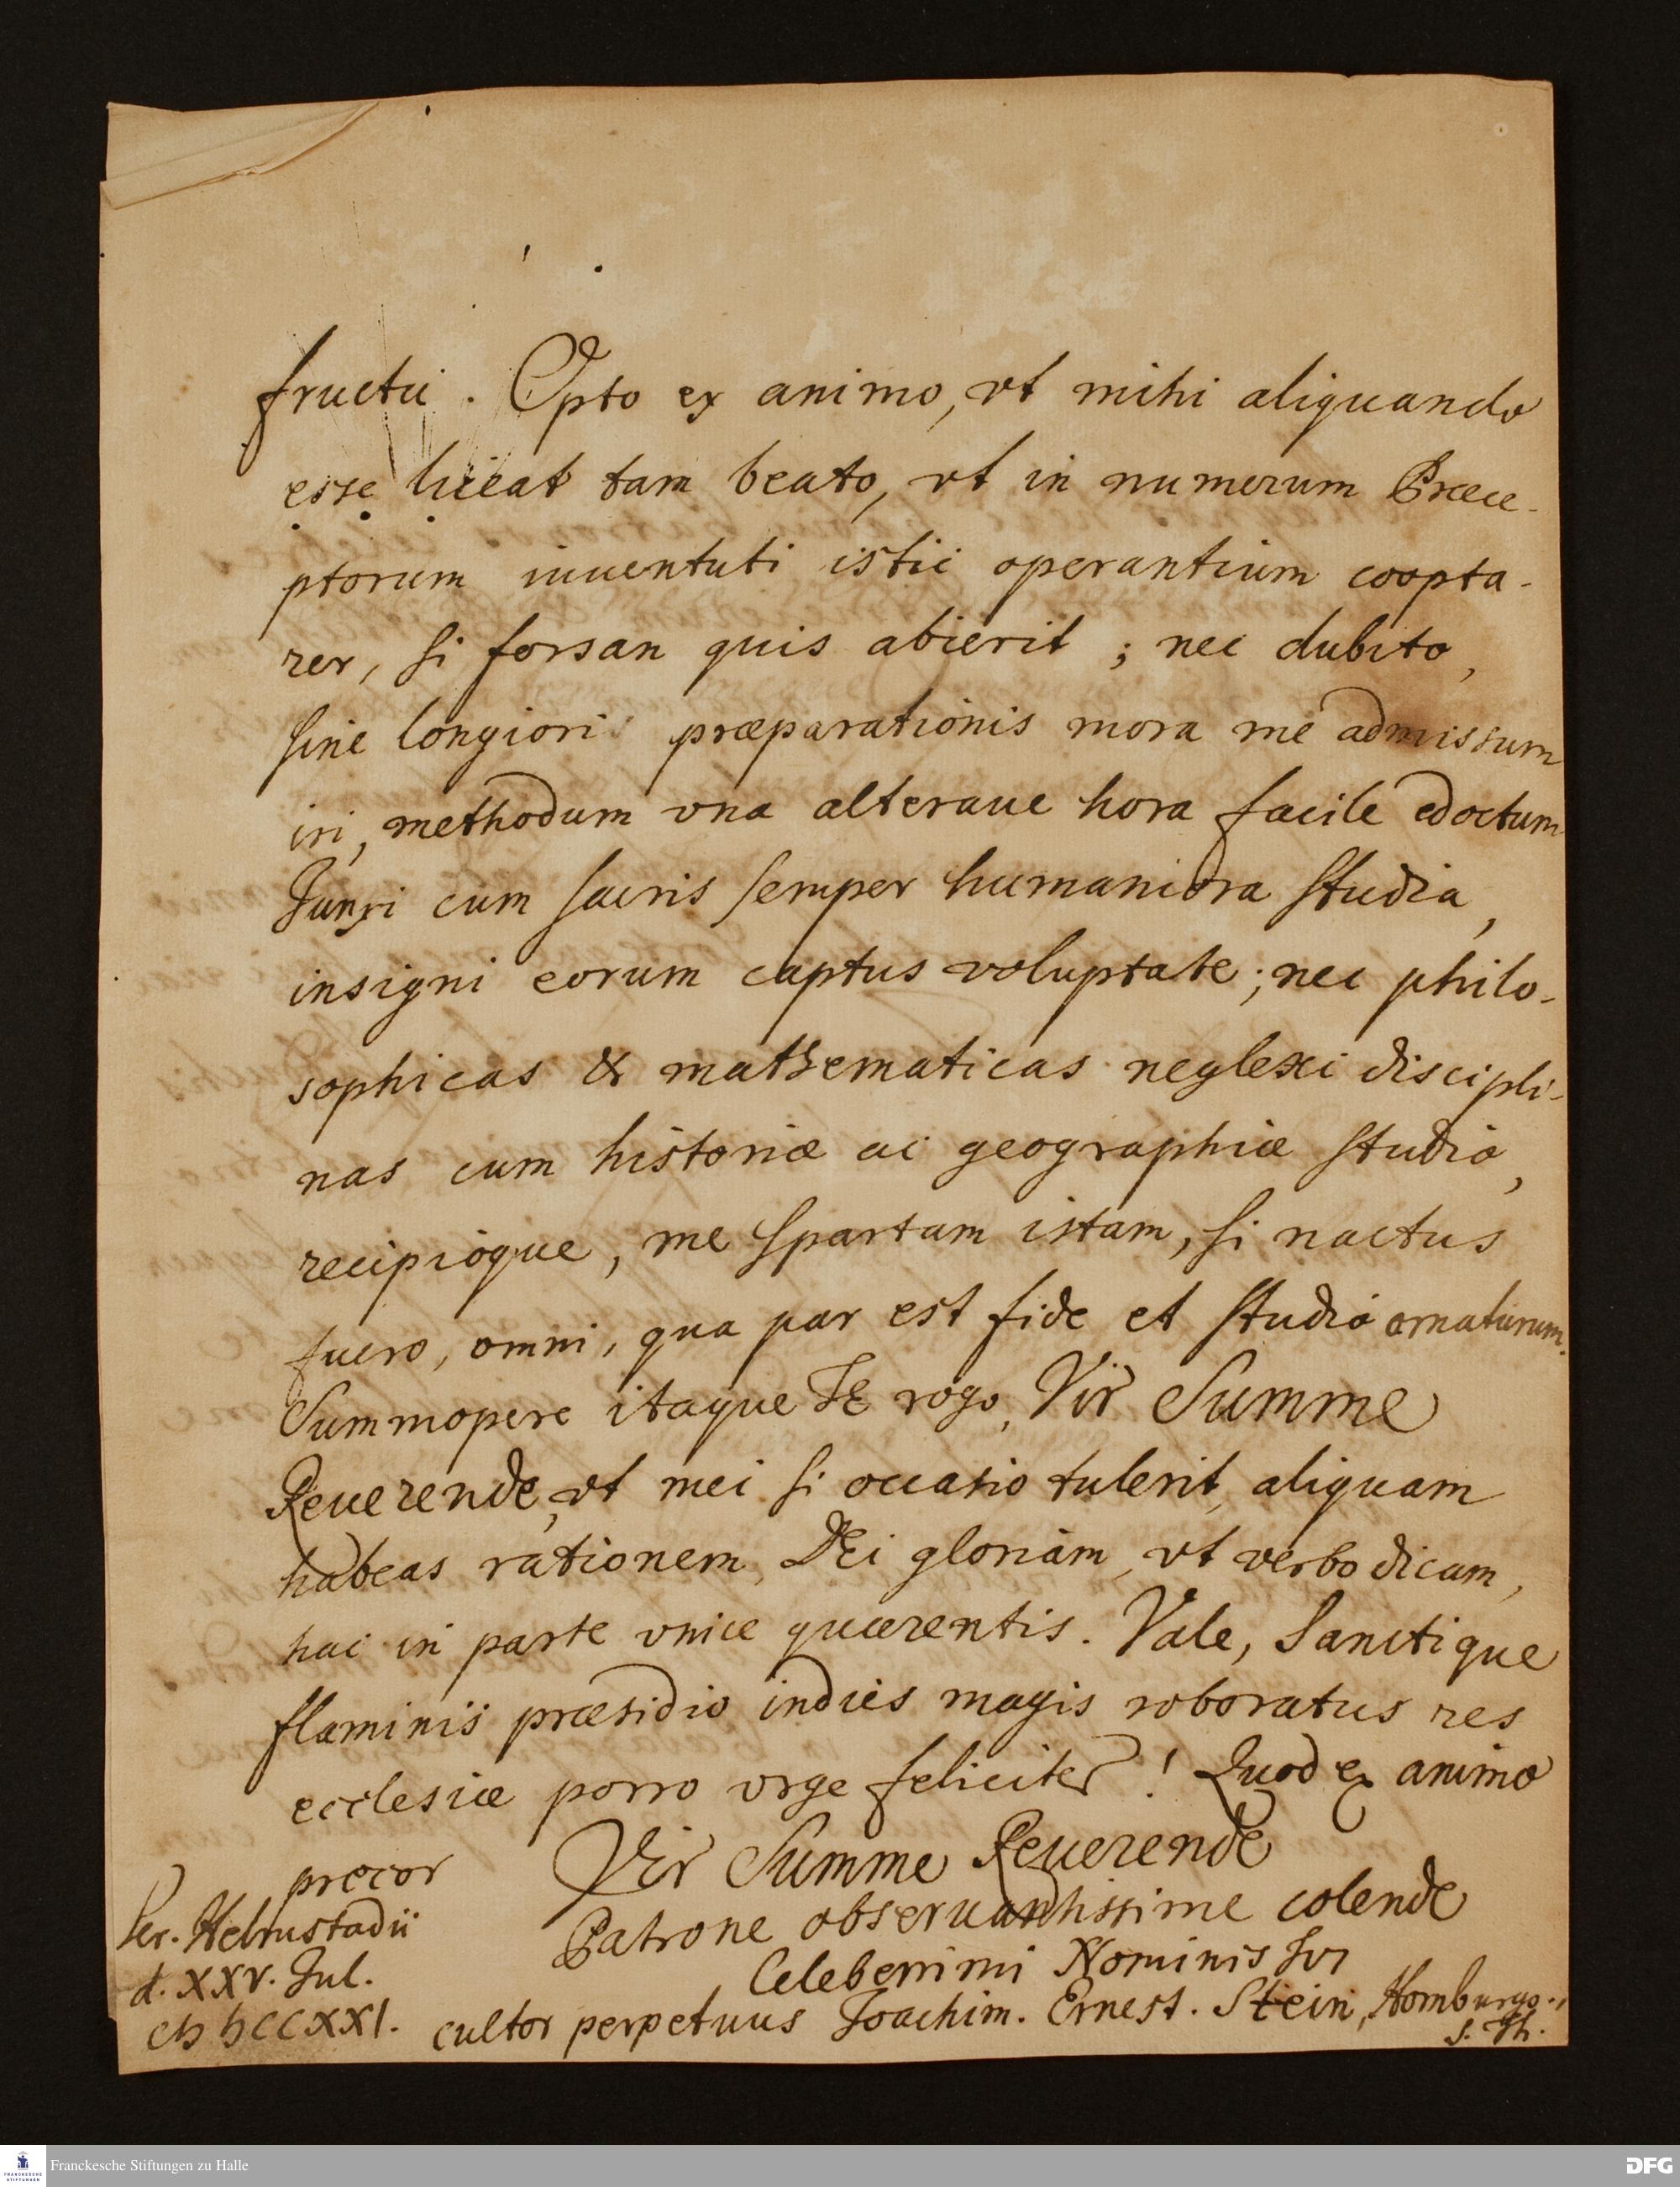 fructu. Opto ex animo, vt mihi aliquando
esse liceat tam beato, vt in numerum Præce-
ptorum iuuentuti istic operantium coopta-
rer, si forsan quis abierit; nec dubito,
sine longioris præparationis mora me admissum
iri, methodum vna alteraue hora facile edoctum
Junxi cum sacris semper humaniora studia,
insigni eorum captus voluptate; nec philo-
sophicas & mathematicas neglexi discipli-
nas cum historiæ ac geographiæ studio,
recipioque, me spartam istam, si nactus
fuero, omni, qua par est fide et studio ornaturum.
Summopere itaque TE rogo, Vir Summe
Reuerende, vt mei si occasio tulerit, aliquam
habeas rationem, DEi gloriam, vt verbo dicam,
hac in parte vnice quærentis. Vale, Sanctique
flaminis præsidio indies magis roboratus res
ecclesiæ porro vrge feliciter! Quod ex animo
precor
Vir Summe Reuerende
Patrone obseruantissime colende
Celeberrimi Nominis Tui
cultor perpetuus Joachim. Ernest. Stein, Homburgo.
S. Th.
Scr. Helmstadii
d. XXV. Jul.
CIƆ IƆCCXXI.
Franckesche Stiftungen zu Halle
FRANCKESCHE
STIFTUNGEN
DFG